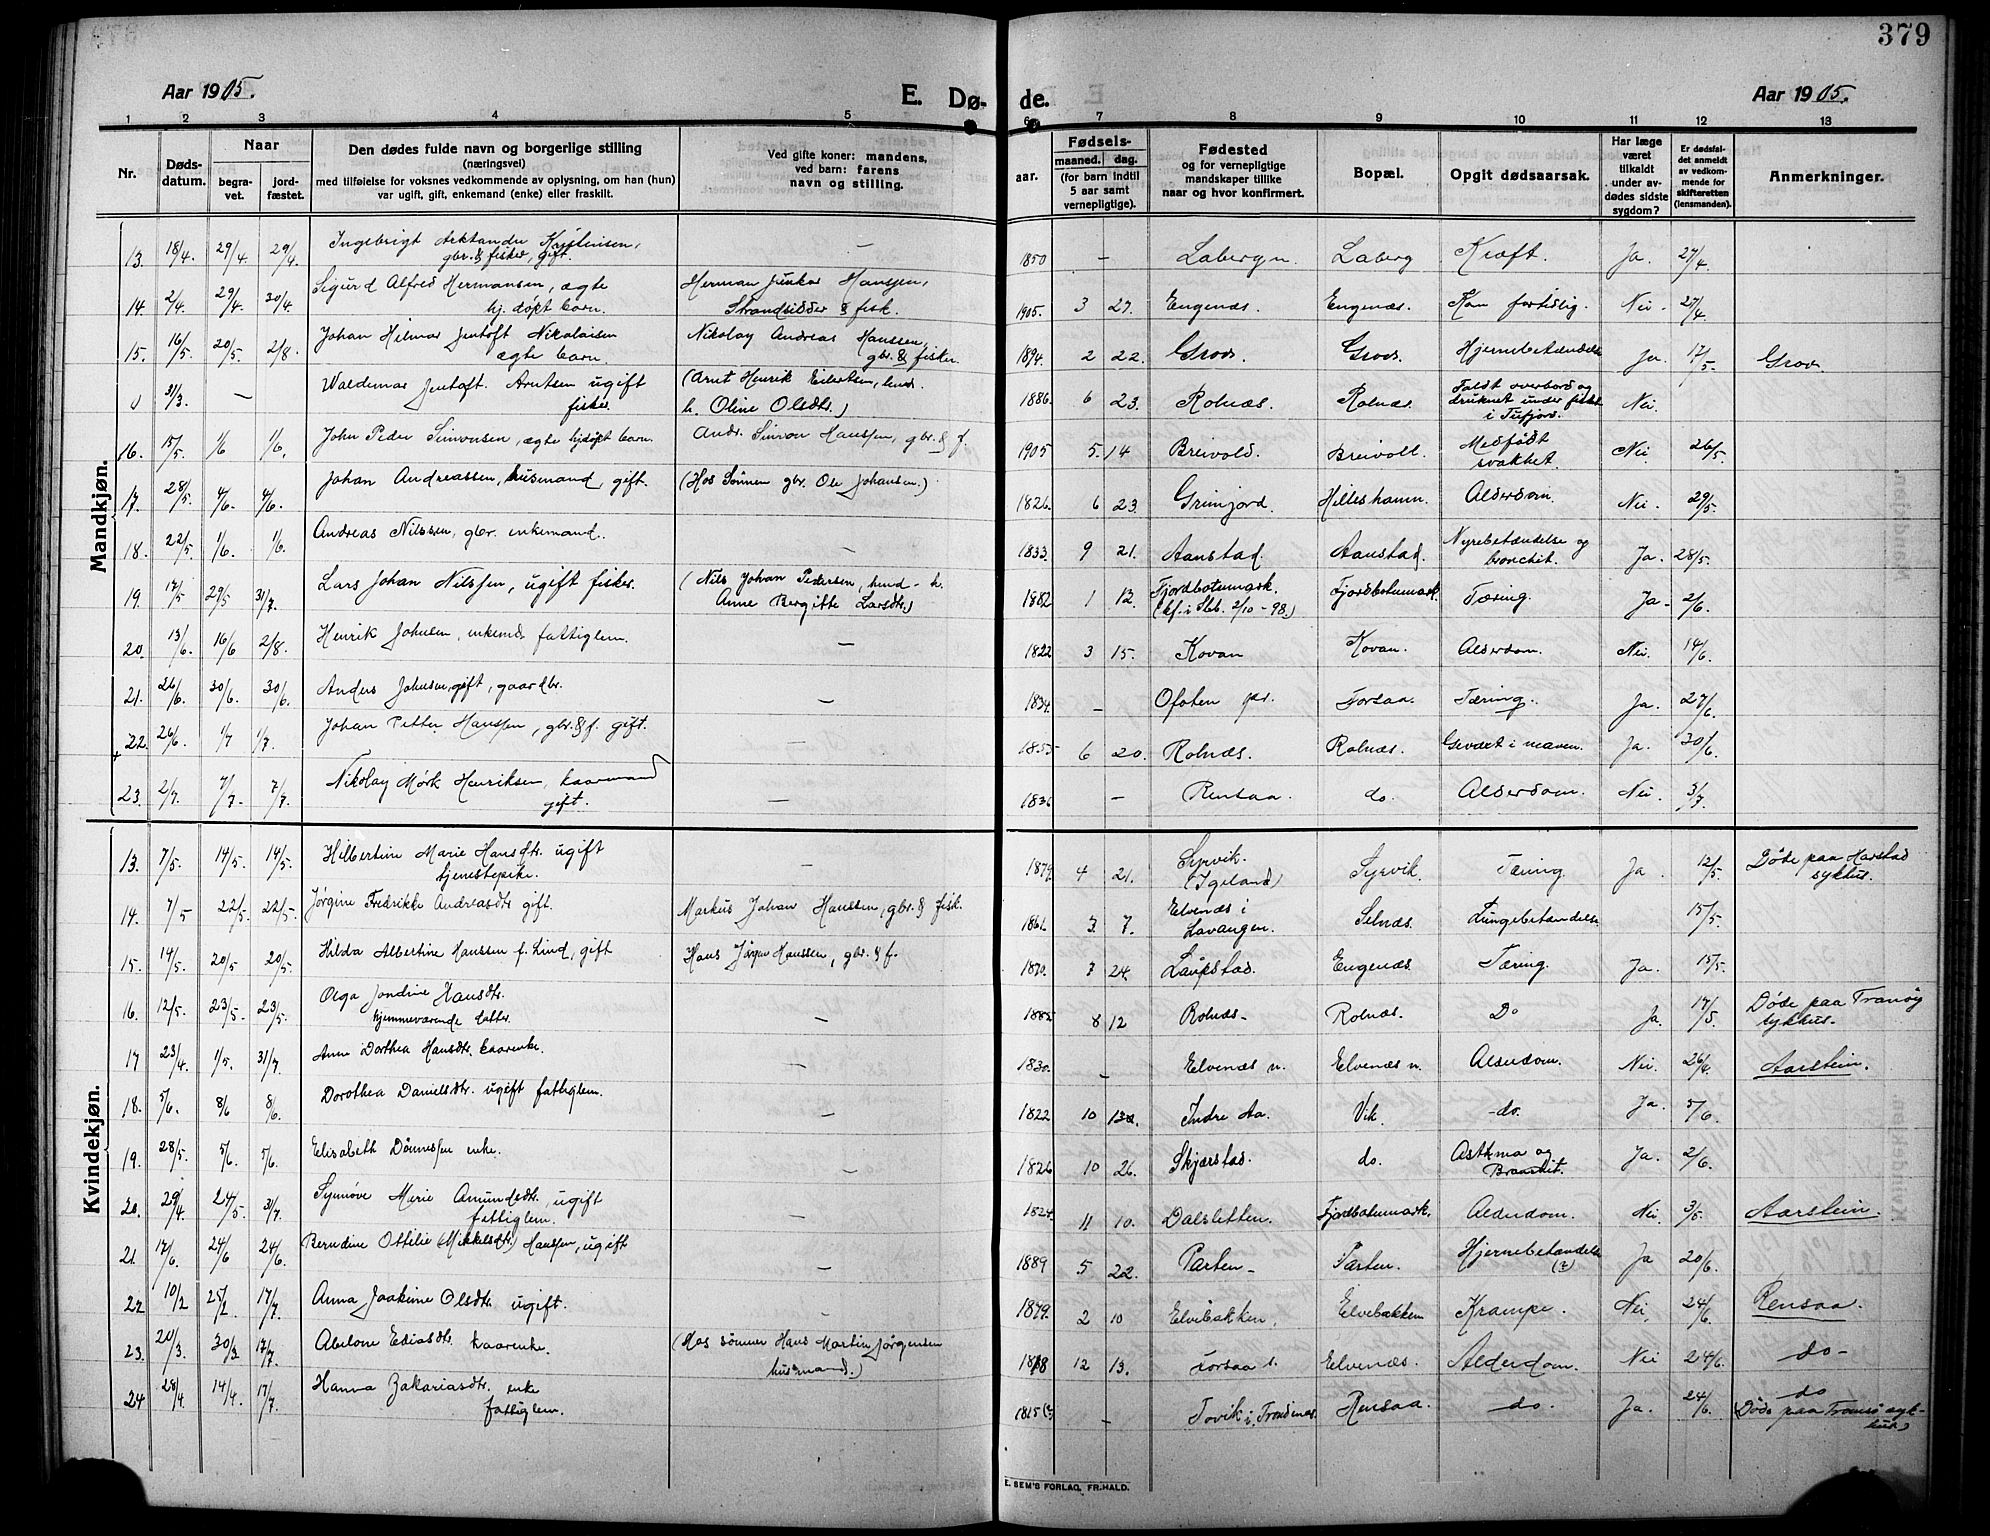 379
Aar 1905.
E. Dø- de.
Aar 1905.
1 2 3 4 5 6 7 8 9 10 11 12 13
Nr.
Døds-
datum.
Naar
begra-
vet.
jord-
fæstet.
Den dødes fulde navn og borgerlige stilling
(næringsvei)
med tilføielse for voksnes vedkommende av oplysning, om han (hun)
var ugift, gift, enkemand (enke) eller fraskilt.
Ved gifte koner: mandens,
ved barn: farens
navn og stilling.
aar.
Fødsels-
maaned. dag.
(for barn indtil
5 aar samt
vernepligtige).
Fødested
og for vernepligtige
mandskaper tillike
naar og hvor konfirmert.
Bopæl.
Opgit dødsaarsak.
Har læge
været
tilkaldt
under av-
dødes sidste
sygdom?
Er dødsfal-
det anmeldt
av vedkom-
mende for
skifteretten
(lensmanden).
Anmerkninger.
Mandkjøn.
13. 18/4. 29/4. 29/4. Ingebrigt Kristensen, — 1850 — Laberg n. Laberg Kræft. Ja. 27/4.
gbr. & fisker, gift.
14. 2/4. 29/4. 30/4. Sigurd Alfred Hermansen, ægte Herman Junkar Hanssen, 1905. 3 27. Engenæs. Engenæs. Kom fortidlig. Nei. 27/4.
hj. døpt barn. Strandsidder & fisk.
15. 16/5. 20/5. 2/8. Johan Hilmar Jentoft Nikolaisen Nikolay Andreas Hanssen, 1894. 2 22. Grov. Grov. Hjernebetændelse Ja. 17/5. Grov.
ægte barn. gbr. & fisker.
31/3. — Waldemar Jentoft Arntsen ugift (Arnt Henrik Eilertsen, 1886. 6 23. Rolnæs. Rolnæs. Faldt overbord og Nei.
fisker. h. Oline Olsdtr.) druknet under fiske
i Tufjord.
16. 15/5. 1/6 1/6. John Peder Simonsen, ægte hjdøpt barn. Andr. Simon Hanssen, gbr. & f. 1905 5. 14 Breivold. Breivold. Medfødt Nei. 26/5.
svakhet.
17. 28/5. 4/6. 4/6. Johan Andreassen, husmand, gift. (Hos Sønnen gbr. Ole Johansen.) 1826. 6 23. Grimjord. Hilleshamn. Alderdom. Nei. 29/5.
18. 22/5. 1/6. 1/6. Andreas Nilssen, gbr. enkemand. — 1833. 9 21. Aanstad. Aanstad. Nyrebetændelse og Ja. 28/5.
bronchit.
19. 17/5 29/5 31/7. Lars Johan Nilssen, ugift fisker. (Nils Johan Pedersen, hmd - h. 1882 1 12. Fjordbotenmark. Fjordbotnmark. Tæring. Ja - 2/6.
Anne Bergitte Larsdtr.) (kf. i Ibb. 2/10 - 98.)
20. 13/6. 16/6 2/8. Henrik Johnsen, enkemd. fattiglem. — 1822 3 15. Kovan Kovan. Alderdom. Nei. 14/6.
21. 26/6 30/6. 30/6. Anders Johnsen, gift, gaardbr. — 1834. — Ofoten pr. Forsaa. Tæring. Ja. 27/6.
22. 26/6. 1/7 1/7. Johan Petter Hanssen, gbr. & f. gift. 1855 6 20. Rolnæs. Rolnæs. Gevæxt i maven. Ja. 30/6.
23. 2/7. 7/7- 7/7. Nikolay Mørk Henriksen, kaarmand — 1836 — Rensaa. do. Alderdom. Nei. 3/7
gift.
Kvindekjøn.
13. 7/5. 14/5. 14/5. Hilbertine Marie Hansdtr. ugift — 1879. 4 21. Syrvik. Syrvik. Tæring Ja. 12/5. Døde paa Harstad
tjenestepike. (Igeland) sykhus.
14. 7/5 22/5. 22/5. Jørgine Fredrikke Andreasdtr gift. Markus Johan Hanssen, gbr. & fisk. 1861. 3. 7. Elvenæs i Selnæs. Lungebetændelse 15/5.
Lavangen.
15. 14/5. 20/5 20/5. Hilda Albertine Hanssen f. Lind, gift Hans Jørgen Hanssen, gbr. & f. 1870. 7 24. Laupstad. Engenæs. Tæring. Ja. 15/5.
16. 12/5. 23/5. 23/5. Olga Jondine Hansdtr. — 1885 8 12 Rolnæs - Rolnæs. Do Ja. 17/5. Døde paa Tranøy
hjemmeværende datter. sykhus.
17 23/4. 1/5. 31/7. Ane Dorthea Hansdtr. kaarenke. 1830. — Elvenæs n. Elvenæs n. Alderdom. Nei. 26/4. Aarstein.
18. 5/6. 8/6 8/6. Dorothea Danielsdtr. ugift fattiglem. — 1822 10 13. Indre Aa. Vik. - do. Ja. 5/6.
19. 28/5. 5/6. 5/6. Elisabeth Dønnessen enke. — 1826 10 26. Skjærstad. do. Asthma og Ja. 2/6.
20. 29/4. 24/5. 31/7. Synnøve Marie Amundsdtr. ugift — 1824. 11 10. Dalsletten. Fjordbotnmark. Alderdom. Nei. 3/5. Aarstein.
fattiglem.
21. 17/6. 24/6 24/6. Berndine Ottilie (Mikkelsdtr.) Hanssen, ugift — 1889 5 22. Parten - Parten. Hjernebetændelse Ja 20/6.
(?)
22 10/2 25/2 17/7. Anna Joakime Olsdtr. ugift. — 1879. 2 10 Elvebakken. Elvebakken Krampe. Nei. 24/6. Rensaa.
23. 20/3. 30/3 17/7. Abelone Esiasdtr. kaarenke. (Hos sønnen Hans Martin Jørgensen 1818 12 13. Forsaa Elvenæs. Alderdom. Nei 24/6. - do -
husmand.)
24 28/4. 14/4. 17/7. Hanna Zakariasdtr. enke 1815 (?) — Tovik i Trondenæs. Rensaa — do. Ja. 24/6. do
fattiglem. (Døde paa Tromsø syk-
hus)
E. SEM'S FORLAG, FR.HALD.